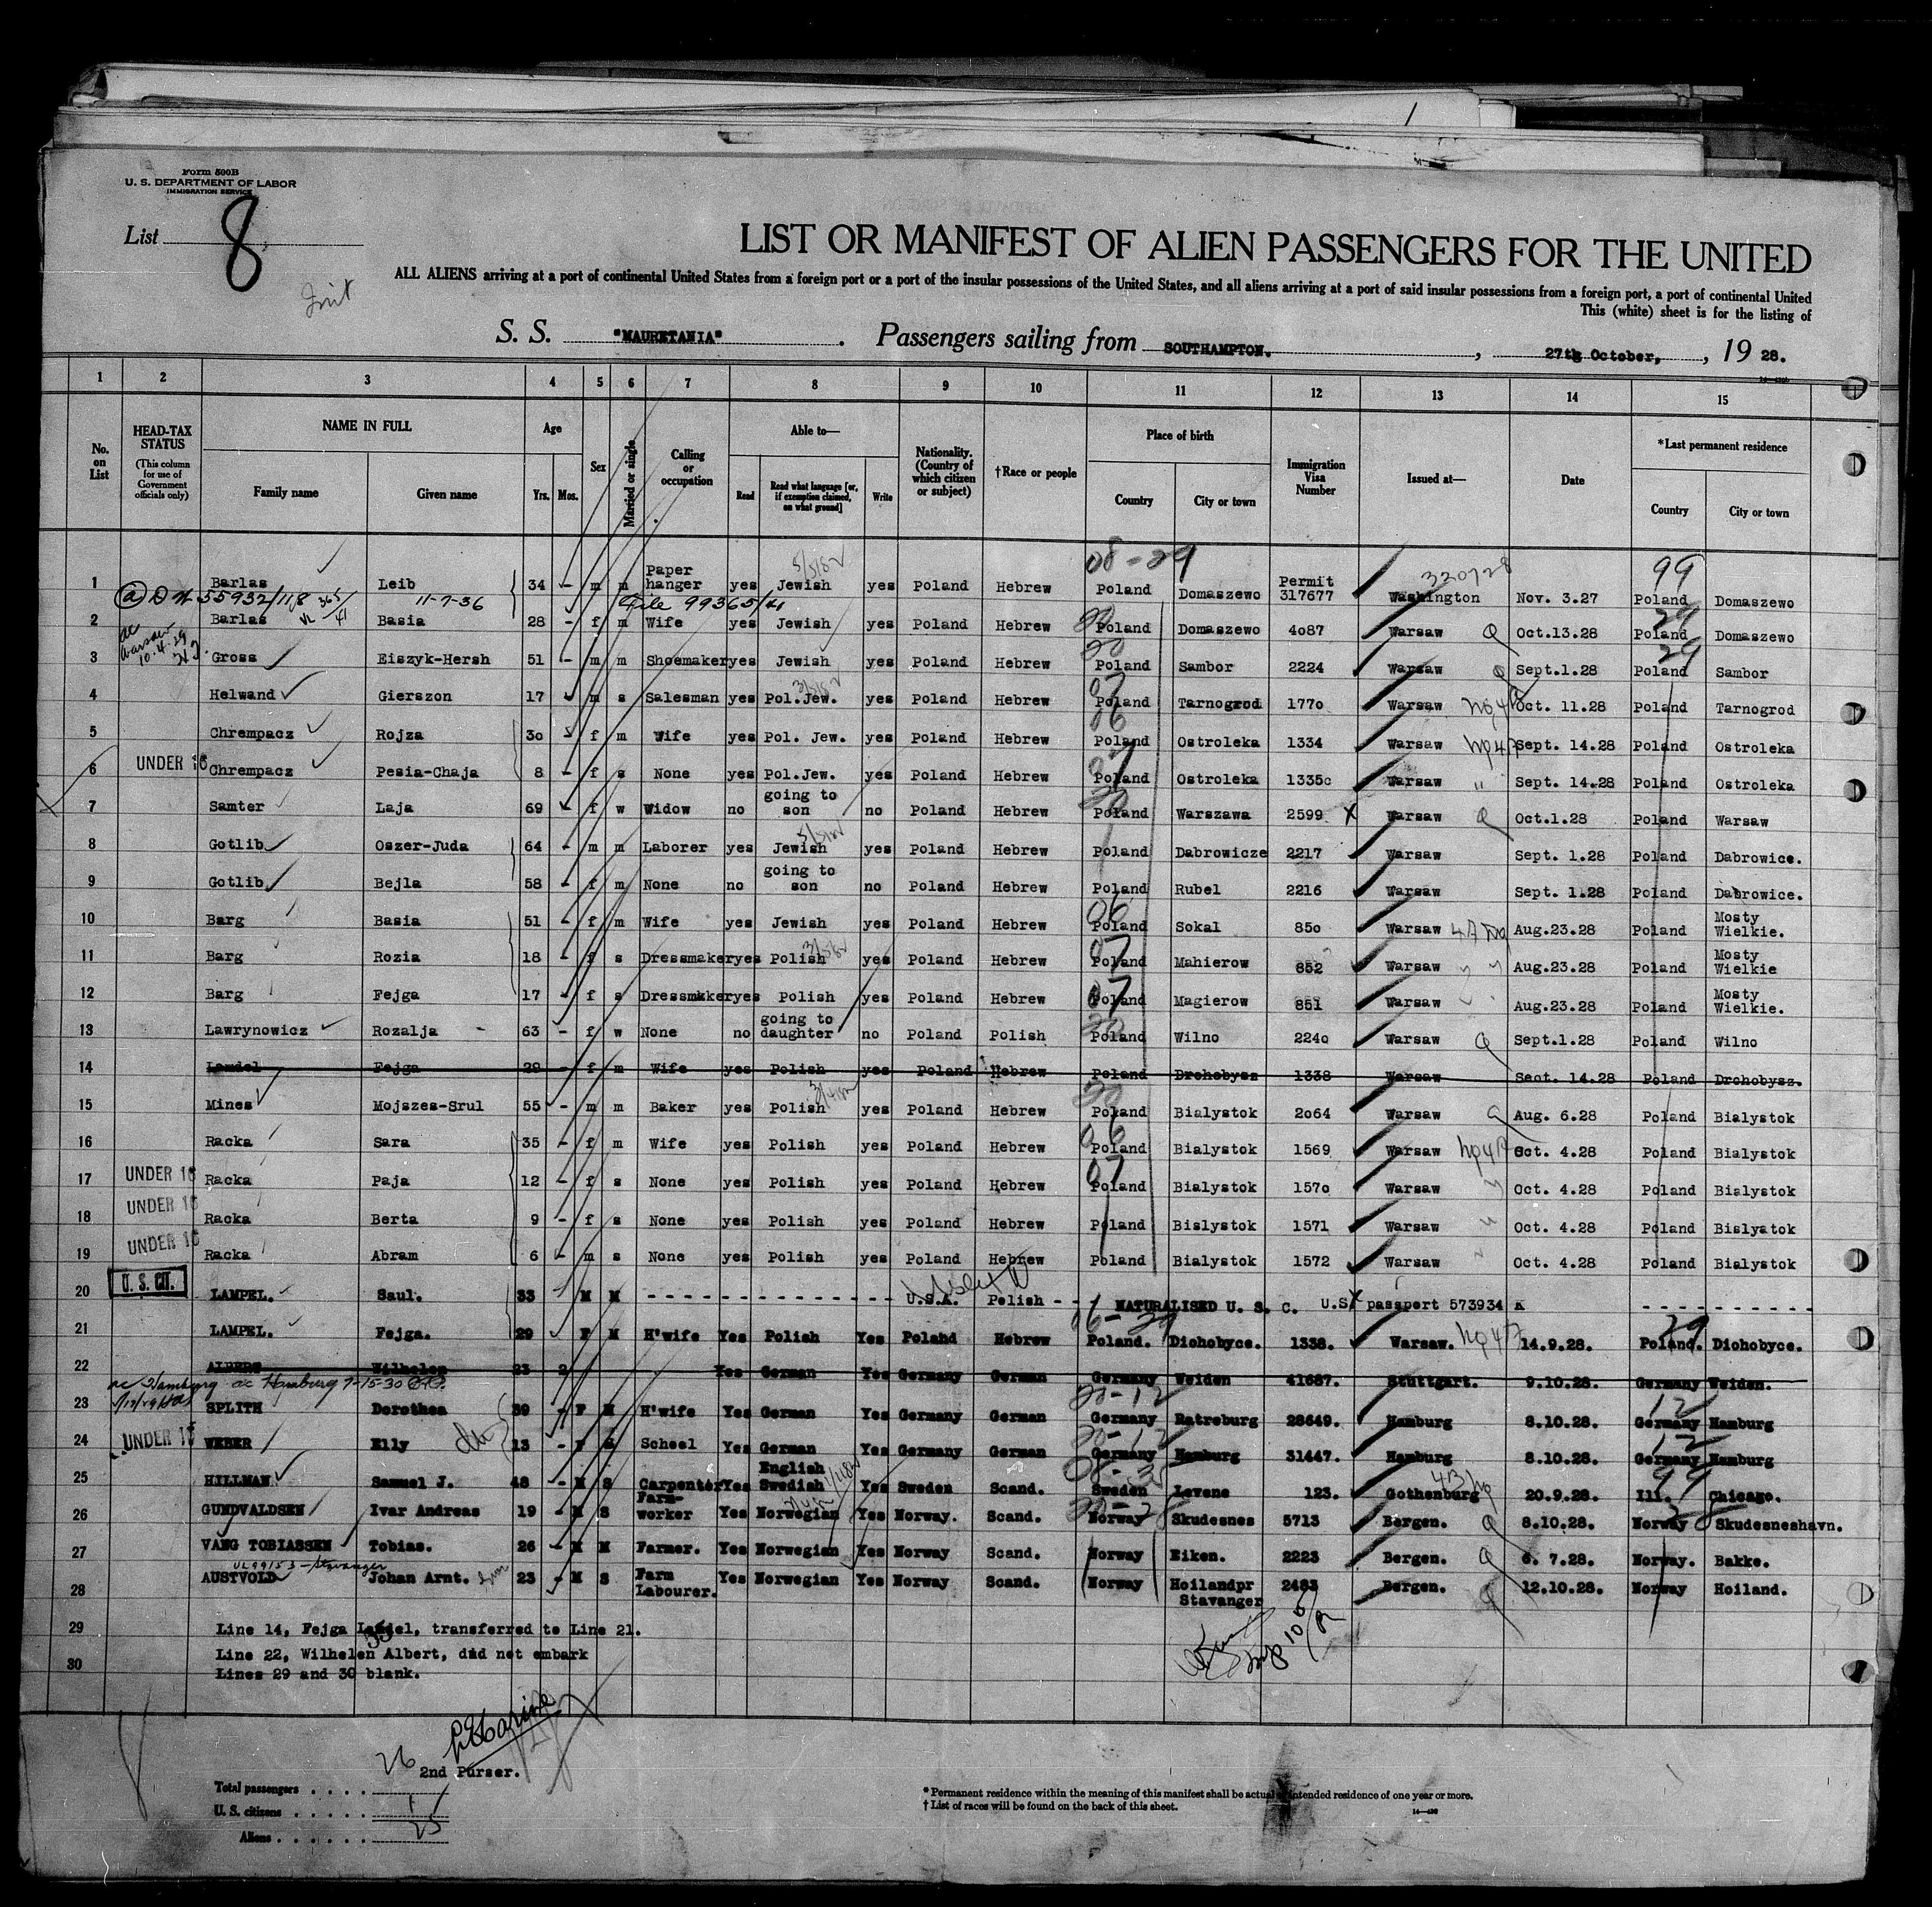 Form 500B
U. S. DEPARTMENT OF LABOR
IMMIGRATION SERVICE
List 8
LIST OR MANIFEST OF ALIEN PASSENGERS FOR THE UNITED
ALL ALIENS arriving at a port of continental United States from a foreign port or a port of the insular possessions of the United States, and all aliens arriving at a port of said insular possessions from a foreign port, a port of continental United
This (white) sheet is for the listing of
S. S. "MAURETANIA". Passengers sailing from SOUTHAMPTON., 27th October, , 19 28.
1 2 3 4 5 6 7 8 9 10 11 12 13 14 15
No. on List
HEAD-TAX STATUS (This column for use of Government officials only)
NAME IN FULL
Family name Given name
Age
Yrs. Mos.
Sex
Married or single
Calling or occupation
Able to—
Read Read what language [or, if exemption claimed, on what ground] Write
Nationality. (Country of which citizen or subject)
†Race or people
Place of birth
Country City or town
Immigration Visa Number
Issued at—
Date
*Last permanent residence
Country City or town
08-29 320728 99
1 Barlas Leib 34 - m m Paper hanger yes Jewish yes Poland Hebrew Poland Domaszewo Permit 317677 Washington Nov. 3.27 Poland Domaszewo
55932/118 11-7-36 File 99365/41
2 Barlas Basia 28 - f m Wife yes Jewish yes Poland Hebrew Poland Domaszewo 4087 Warsaw Oct.13.28 Poland Domaszewo
3 Gross Eiszyk-Hersh 51 - m m Shoemaker yes Jewish yes Poland Hebrew Poland Sambor 2224 Warsaw Sept.1.28 Poland Sambor
4 Helwand Gierszon 17 m s Salesman yes Pol.Jew. yes Poland Hebrew Poland Tarnogrod 1770 Warsaw Oct. 11.28 Poland Tarnogrod
5 Chrempacz Rojza 30 f m Wife yes Pol. Jew. yes Poland Hebrew Poland Ostroleka 1334 Warsaw Sept. 14.28 Poland Ostroleka
6 UNDER 16 Chrempacz Pesia-Chaja 8 - f s None yes Pol.Jew. yes Poland Hebrew Poland Ostroleka 1335c Warsaw Sept. 14.28 Poland Ostroleka
7 Samter Laja 69 f w Widow no going to son no Poland Hebrew Poland Warszawa 2599 Warsaw Oct.1.28 Poland Warsaw
8 Gotlib Oszer-Juda 64 - m m Laborer yes Jewish yes Poland Hebrew Poland Dabrowicze 2217 Warsaw Sept. 1.28 Poland Dabrowice.
9 Gotlib Bejla 58 - f m None no going to son no Poland Hebrew Poland Rubel 2216 Warsaw Sept. 1.28 Poland Dabrowice.
10 Barg Basia 51 f m Wife yes Jewish yes Poland Hebrew Poland Sokal 850 Warsaw Aug.23.28 Poland Mosty Wielkie.
11 Barg Rozia 18 f s Dressmaker yes Polish yes Poland Hebrew Poland Mahierow 852 Warsaw Aug.23.28 Poland Mosty Wielkie
12 Barg Fejga 17 - f s Dressmaker yes Polish yes Poland Hebrew Poland Magierow 851 Warsaw Aug.23.28 Poland Mosty Wielkie.
13 Lawrynowicz Rozalja - 63 - f w None no going to daughter no Poland Polish Poland Wilno 2240 Warsaw Sept.1.28 Poland Wilno
14 Lamdel Fejga 29 - f m Wife yes Polish yes Poland Hebrew Poland Drohobysz 1338 Warsaw Sept. 14.28 Poland Drohobysz.
15 Mines Mojszes-Srul 55 - m m Baker yes Polish yes Poland Hebrew Poland Bialystok 2064 Warsaw Aug. 6.28 Poland Bialystok
16 Racka Sara 35 - f m Wife yes Polish yes Poland Hebrew Poland Bialystok 1569 Warsaw Oct. 4.28 Poland Bialystok
17 UNDER 16 Racka Paja 12 f s None yes Polish yes Poland Hebrew Poland Bialystok 1570 Warsaw Oct. 4.28 Poland Bialystok
18 UNDER 16 Racka Berta 9 - f s None yes Polish yes Poland Hebrew Poland Bislystok 1571 Warsaw Oct. 4.28 Poland Bislystok
19 UNDER 16 Racka Abram 6 m s None yes Polish yes Poland Hebrew Poland Bialystok 1572 Warsaw Oct. 4.28 Poland Bialystok
20 U. S. CIT. LAMPEL. Saul. 33 M M U.S.A. Polish NATURALISED U. S. C. U.S. passport 573934
21 LAMPEL. Fejga. 29 F M H'wife Yes Polish Yes Poland Hebrew Poland. Dichobyce. 1338. Warsaw. 14.9.28. Poland. Dichobyce.
22 ALBERT Wilhelen 23 2 Yes German Yes Germany German Germany Weiden 41687. Stuttgart. 9.10.28. Germany Weiden.
ac Hamburg ac Hamburg 7-15-30
23 SPLITH Dorothea 39 - F M H'wife Yes German Yes Germany German Germany Ratreburg 28649. Hamburg 8.10.28. Germany Hamburg
24 UNDER 16 WEBER Elly 13 - F S School Yes German Yes Germany German Germany Hamburg 31447. Hamburg 8.10.28. Germany Hamburg
25 HILLMAN Samuel J. 48 - M S Carpenter Yes English Swedish Yes Sweden Scand. Sweden Levene 123. Gothenburg 20.9.28. Ill. Chicago.
26 GUNDVALDSEN Ivar Andreas 19 - M S Farm-worker Yes Norwegian Yes Norway. Scand. Norway Skudesnes 5713 Bergen. 8.10.28. Norway Skudesneshavn.
27 VANG TOBIASSEN Tobias. 26 M M Farmer. Yes Norwegian Yes Norway Scand. Norway Eiken. 2223 Bergen. 6. 7.28. Norway. Bakke.
28 AUSTVOLD Johan Arnt. 23 - M S Farm Labourer. Yes Norwegian Yes Norway Scand. Norway Hoilandpr Stavanger 2483 Bergen. 12.10.28. Norway Hoiland.
29 Line 14, Fejga Lamdel, transferred to Line 21.
Line 22, Wilhelen Albert, did not embark
30 Lines 29 and 30 blank.
26
2nd Purser.
Total passengers . . . .
U. S. citizens . . . . . 1
Aliens . . . . . . 25
* Permanent residence within the meaning of this manifest shall be actual or intended residence of one year or more.
† List of races will be found on the back of this sheet.